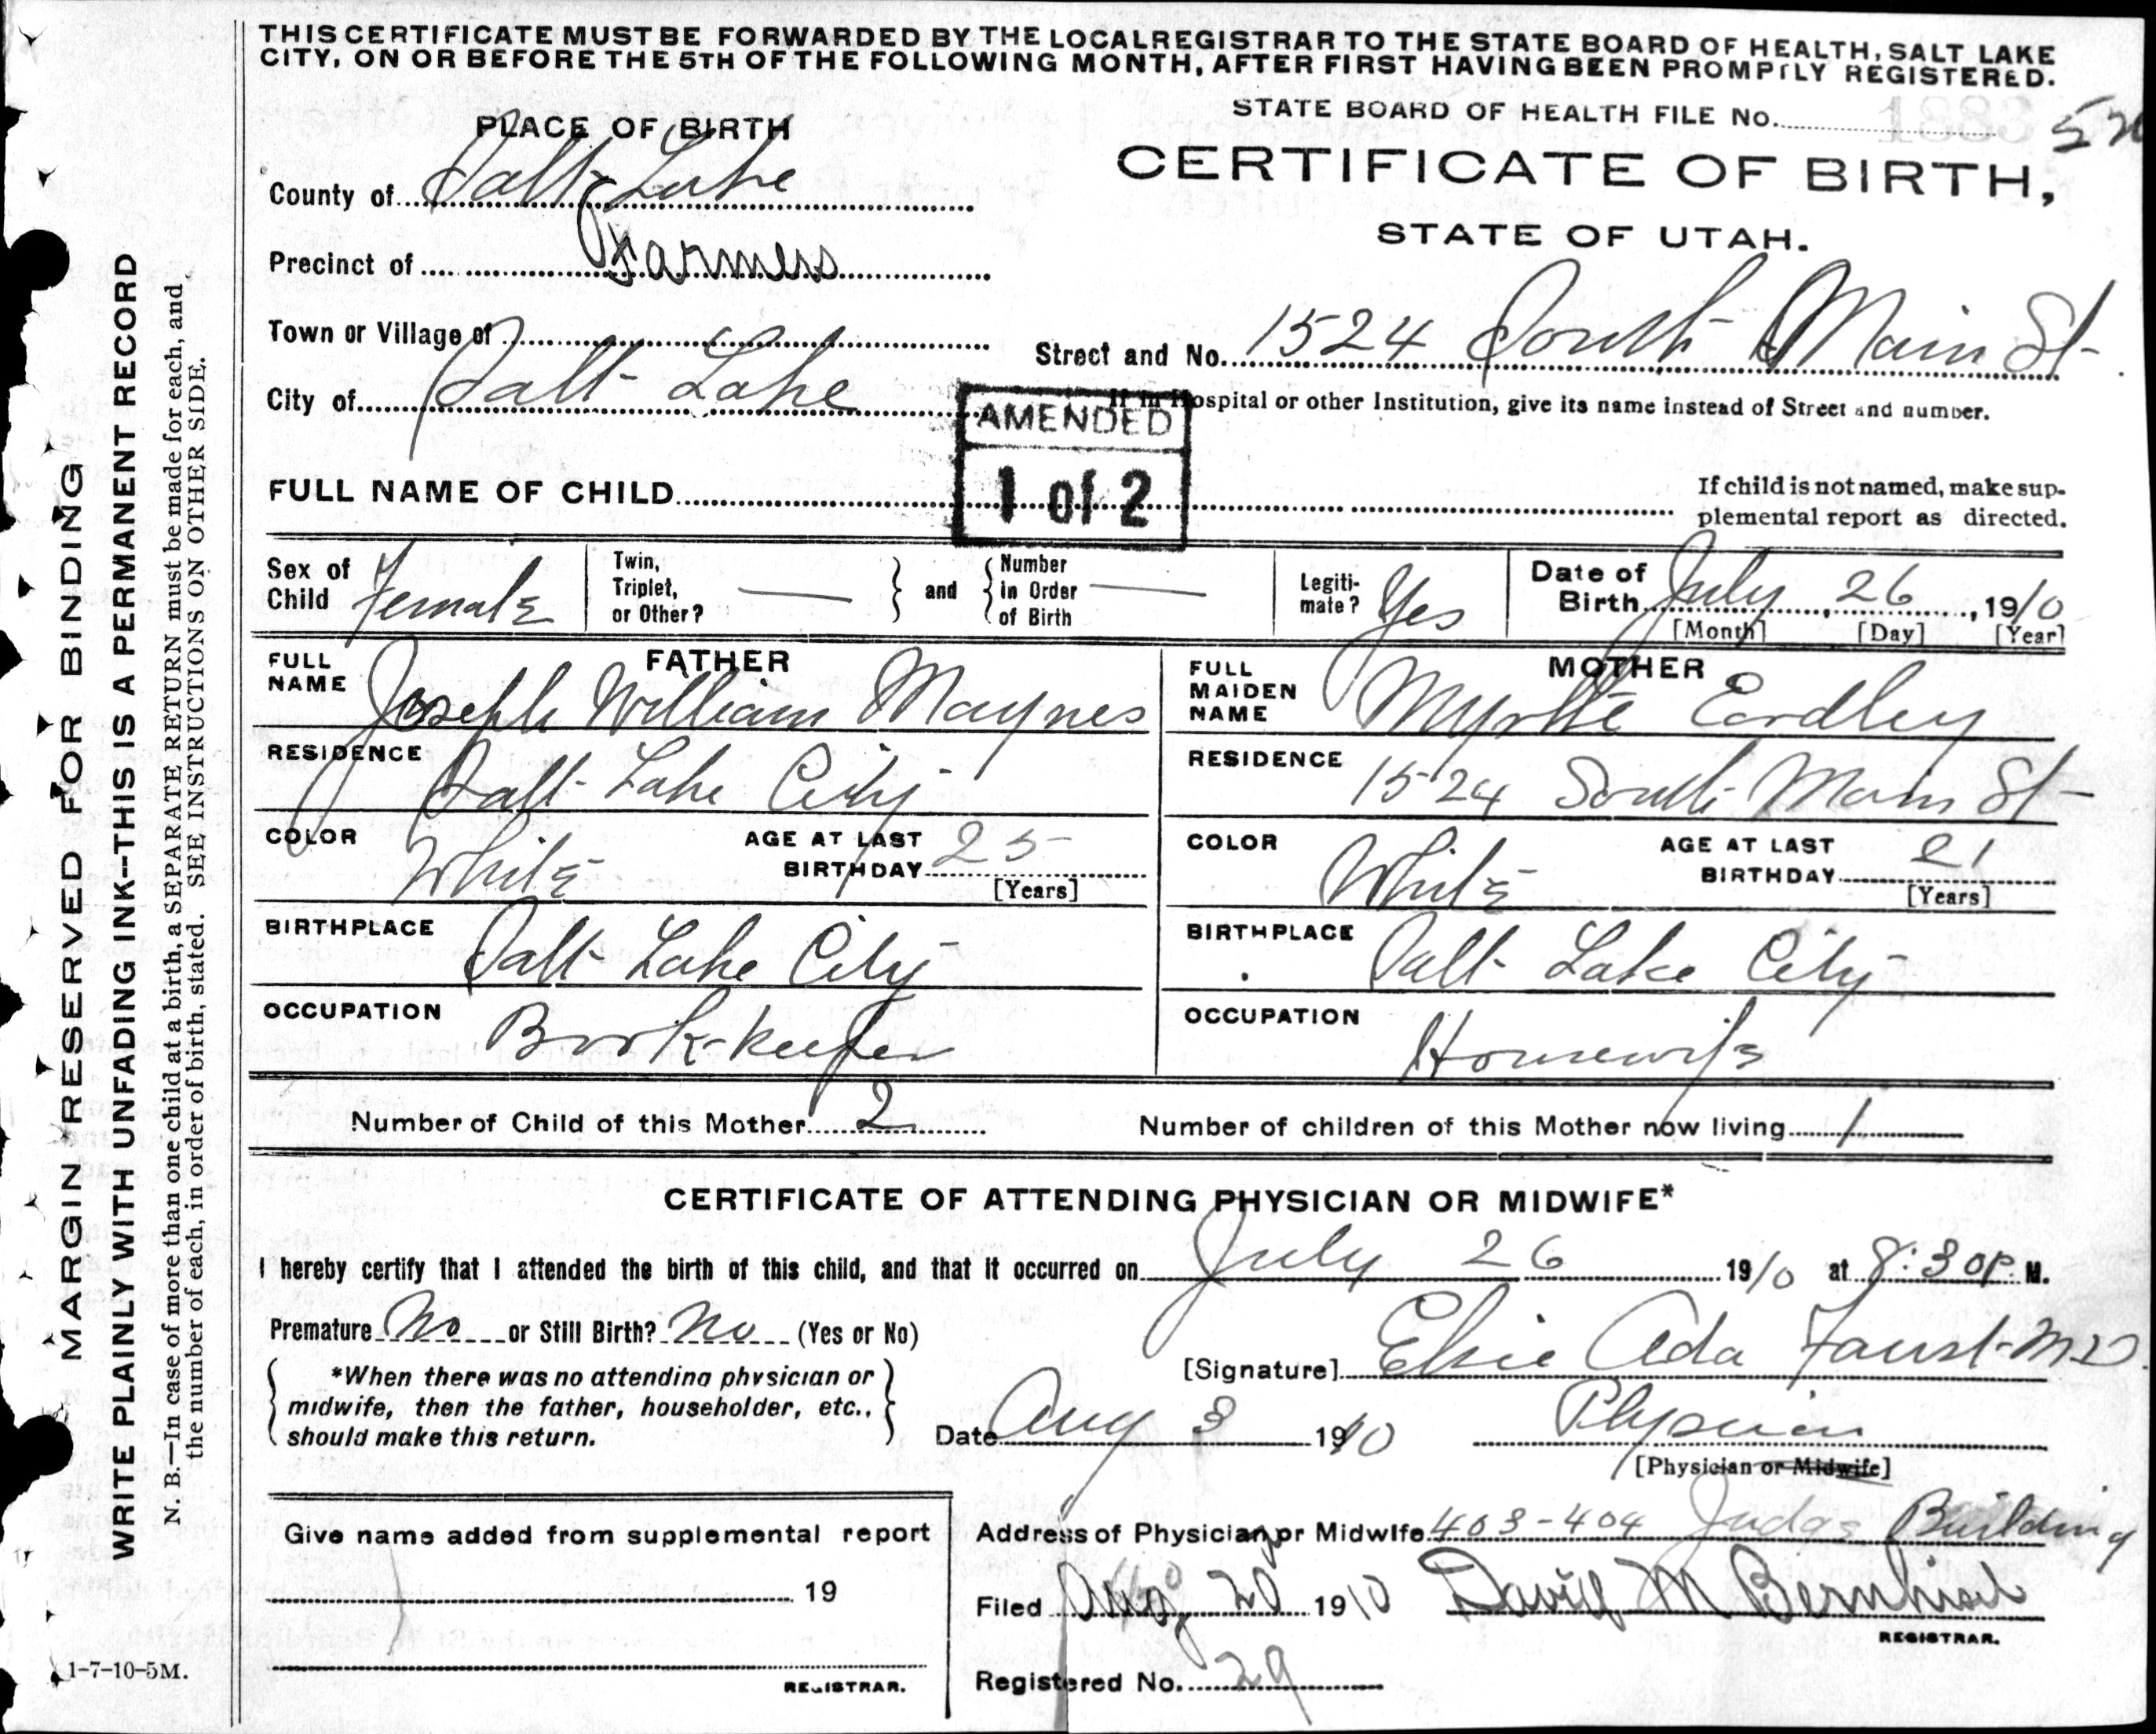 THIS CERTIFICATE MUST BE FORWARDED BY THE LOCAL REGISTRAR TO THE STATE BOARD OF HEALTH, SALT LAKE
CITY, ON OR BEFORE THE 5TH OF THE FOLLOWING MONTH, AFTER FIRST HAVING BEEN PROMPTLY REGISTERED.
STATE BOARD OF HEALTH FILE No.
PLACE OF BIRTH
CERTIFICATE OF BIRTH,
STATE OF UTAH.
County of Salt Lake
Precinct of Farmers
Town or Village of
Street and No. 1524 South Main St
City of Salt Lake
If in Hospital or other Institution, give its name instead of Street and number.
AMENDED
1 of 2
FULL NAME OF CHILD
If child is not named, make sup-
plemental report as directed.
Sex of Child Female
Twin, Triplet, or Other? —
and
Number in Order of Birth —
Legiti-mate? Yes
Date of Birth July 26, 1910
[Month] [Day] [Year]
FATHER
FULL NAME Joseph William Maynes
RESIDENCE Salt Lake City
COLOR White
AGE AT LAST BIRTHDAY 25
[Years]
BIRTHPLACE Salt Lake City
OCCUPATION Book-keeper
MOTHER
FULL MAIDEN NAME Myrtle Eardley
RESIDENCE 1524 South Main St
COLOR White
AGE AT LAST BIRTHDAY 21
[Years]
BIRTHPLACE Salt Lake City
OCCUPATION Housewife
Number of Child of this Mother 2
Number of children of this Mother now living 1
CERTIFICATE OF ATTENDING PHYSICIAN OR MIDWIFE*
I hereby certify that I attended the birth of this child, and that it occurred on July 26 1910 at 8:30 P. M.
Premature No or Still Birth? No (Yes or No)
*When there was no attending physician or
midwife, then the father, householder, etc.,
should make this return.
[Signature] Elsie Ada Faust M.D.
Date Aug 3 1910
Physician
[Physician or Midwife]
Give name added from supplemental report
19
REGISTRAR.
Address of Physician or Midwife 403-404 Judge Building
Filed Aug 20 1910 David M Bernhisel
REGISTRAR.
Registered No. 29
1-7-10-5M.
MARGIN RESERVED FOR BINDING
WRITE PLAINLY WITH UNFADING INK--THIS IS A PERMANENT RECORD
N. B.—In case of more than one child at a birth, a SEPARATE RETURN must be made for each, and
the number of each, in order of birth, stated. SEE INSTRUCTIONS ON OTHER SIDE.